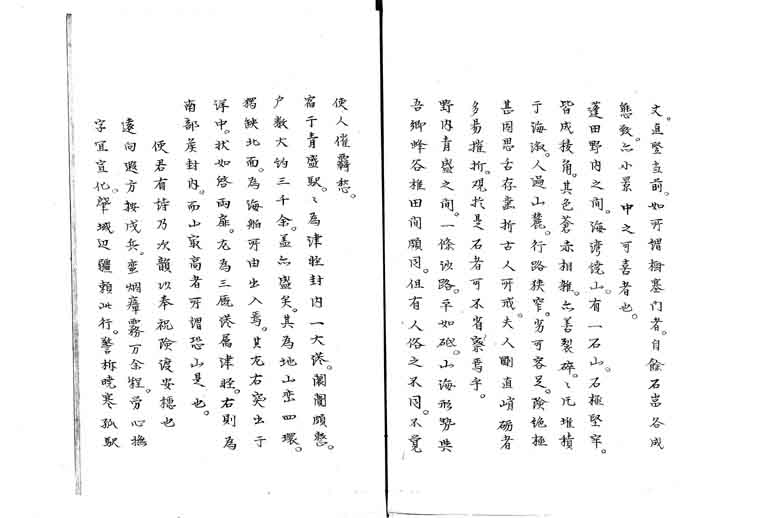 文直竪当前。如所謂樹塞門者。自餘石岩各成
態致。亦小景中之可喜者也。
蓬田野内之間。海湾繞山。有一石山。石極堅牢。
皆成稜角。其色蒼赤相雜。亦善裂碎。〻片堆積
于海溆。人過山麓。行路狭窄。劣可容足。險詭極
甚。因思古存壷折古人所戒。夫人剛直峭砺者
多易摧折。観於是石者可不省察焉乎。
野内青盛之間。一條沙路。平如砥。山海形勢與
吾郷蜂谷椎田間頗同。但有人俗之不同。不覚
使人催羇愁。
宿于青盛駅。〻為津軽封内一大港。闤闠頗整。
户数大約三千余。盖亦盛矣。其為地山巒四環。
獨缺北面。為海舶所由出入焉。其左右突出于
洋中。状如啓両扉。左為三厩港属津軽。右則為
南部産封内。而山最高者所謂恐山是也。
使君有詩乃次韻以奉祝險渡安穏也
遠向遐方按戍兵。蛮烟瘴霧万余程。労心撫
字宜宣化。肇域辺疆賴此行。警柝暁寒孤駅